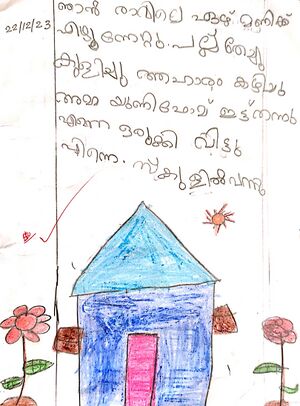 ഞാൻ രാവിലെ ഏഴ് മണിക്ക്
22/12/23
എഴുന്നേറ്റു. പല്ല് തേച്ചു
കുളിച്ചു ആഹാരം കഴിച്ചു
അമ്മ യുണിഫോമ് ഇട്ട്തന്നു
എന്നെ ഒരുക്കി വിട്ടു
എന്നെ. സ്കുളിൽവന്നു